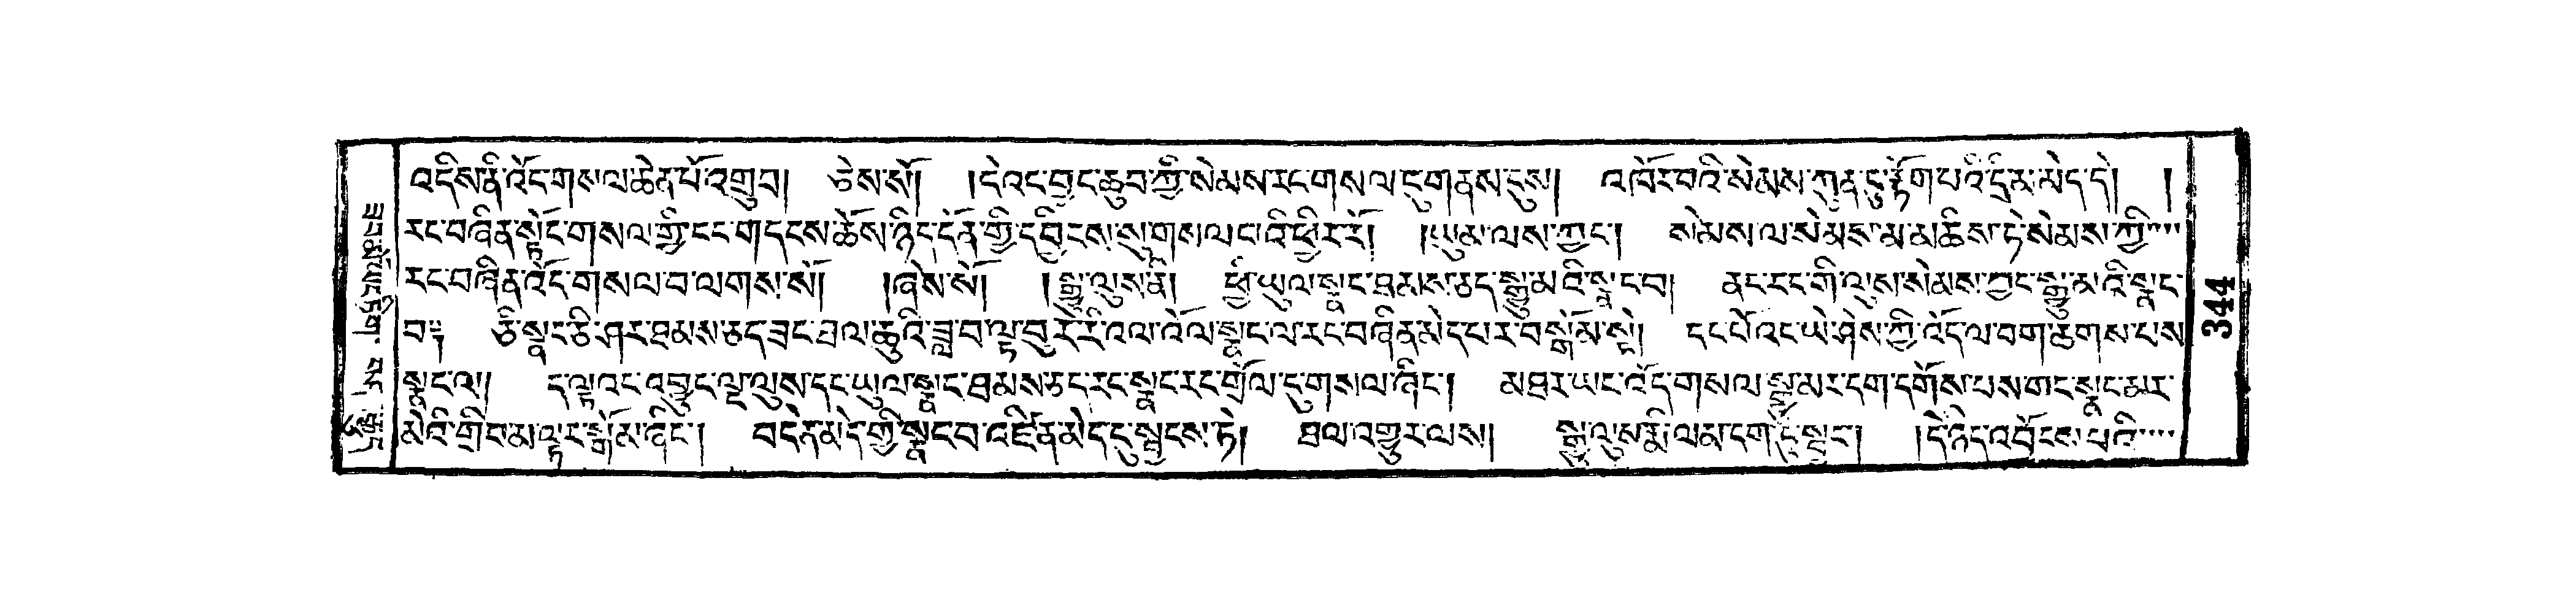 འདིས་ནི་འོད་གསལ་ཆེན་པོ་འགྲུབ། ཅེས་སོ། །དེའང་བྱང་ཆུབ་ཀྱི་སེམས་རང་གསལ་དུ་གནས་དུས། འཁོར་བའི་སེམས་ཀུན་ཏུ་རྟོག་པའི་དྲི་མ་མེད་དེ། །
རང་བཞིན་སྟོང་གསལ་གྱི་ངང་གདངས་ཆོས་ཉིད་དོན་གྱི་དབྱིངས་སུ་གསལ་བའི་ཕྱིར་རོ། །ཡུམ་ལས་ཀྱང་། སེམས་ལ་སེམས་མ་མཆིས་ཏེ་སེམས་ཀྱི
རང་བཞིན་འོད་གསལ་བ་ལགས་སོ། །ཞེས་སོ། །སྒྱུ་ལུས་ནི། ཕྱི་ཡུལ་སྣང་ཐམས་ཅད་སྒྱུ་མའི་སྣང་བ། ནང་རང་གི་ལུས་སེམས་ཀྱང་སྒྱུ་མའི་སྣང་
བ༔ ཅི་སྣང་ཅི་ཤར་ཐམས་ཅད་བྲང་བྲལ་ཆུའི་ཟླ་བ་ལྟ་བུར་རེ་རི་འལ་འོལ་སྣང་ལ་རང་བཞིན་མེད་པར་བསྒོམ་སྟེ། དང་པོའང་ཡེ་ཤེས་ཀྱི་འོད་ལ་བག་ཆགས་པས
སྣང་ལ། ད་ལྟའང་འབྱུང་ལྔ་ལུས་དང་ཡུལ་སྣང་ཐམས་ཅད་རང་སྣང་རང་གྲོལ་དུ་གསལ་ཞིང་། མཐར་ཡང་འོད་གསལ་སྒྱུ་མར་དག་དགོས་པས་གང་སྣང་མར་
མེའི་གྲིབ་མ་ལྟར་སྒོམ་ཞིང་། བདེན་མེད་ཀྱི་སྣང་བ་འཛིན་མེད་དུ་སྦྱངས་ཏེ། ཐལ་འགྱུར་ལས། སྒྱུ་ལུས་རྨི་ལམ་དག་ཏུ་སྦྱང་། །དེ་ཉིད་འབྱོངས་པའི
443